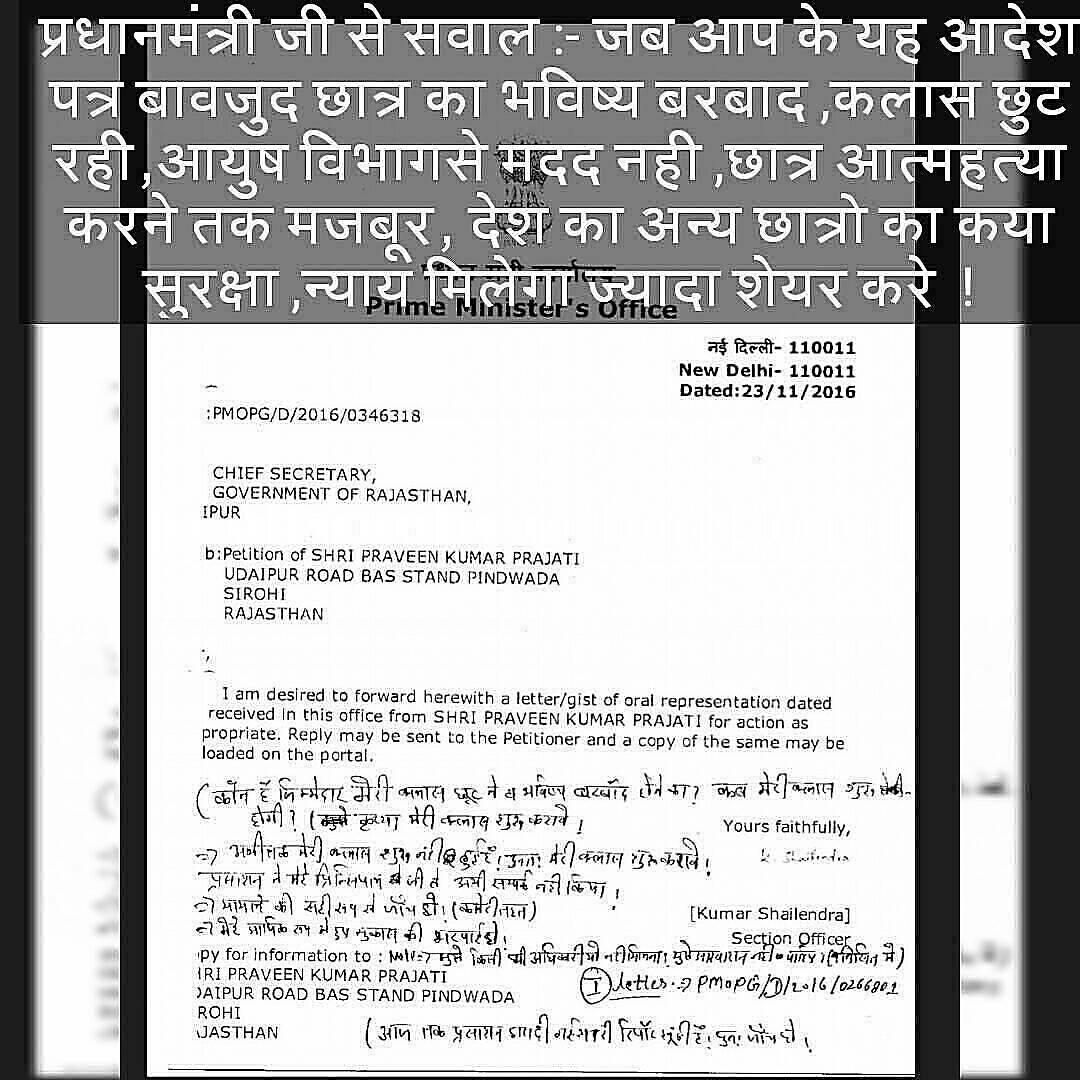 प्रधानमंत्री जी से सवाल :- जब आप के यह आदेश
पत्र बावजुद छात्र का भविष्य बरबाद ,कलास छुट
रही ,आयुष विभागसे मदद नही ,छात्र आत्महत्या
करने तक मजबूर , देश का अन्य छात्रो का कया
सुरक्षा ,न्याय मिलेगा ज्यादा शेयर करे !
Prime Minister's Office
नई दिल्ली- 110011
New Delhi- 110011
Dated:23/11/2016
:PMOPG/D/2016/0346318
CHIEF SECRETARY,
GOVERNMENT OF RAJASTHAN,
IPUR
b:Petition of SHRI PRAVEEN KUMAR PRAJATI
UDAIPUR ROAD BAS STAND PINDWADA
SIROHI
RAJASTHAN
I am desired to forward herewith a letter/gist of oral representation dated
received in this office from SHRI PRAVEEN KUMAR PRAJATI for action as
propriate. Reply may be sent to the Petitioner and a copy of the same may be
loaded on the portal.
(कौन हैं जिम्मेदार मेरी क्लास छूटने व भविष्य बरबाद होने का? कब मेरी क्लास शुरू
होगी? ( कृपया मेरी क्लास शुरू करावे !
Yours faithfully,
=> अभी तक मेरी क्लास शुरू नही हुई हैं! पुनः मेरी क्लास शुरू करावे!
प्रशासन ने मेरे प्रिन्सिपाल जी से अभी सम्पर्क नही किया!
=> मामले की सही रूप से जाँच हो!
[Kumar Shailendra]
=> मेरे आर्थिक रूप में हुए नुकसान की
Section Officer
py for information to :
IRI PRAVEEN KUMAR PRAJATI
DAIPUR ROAD BAS STAND PINDWADA
I letter => PMOPG/D/2016/0266801
ROHI
JASTHAN
(आज तक प्रशासन द्वारा दी गई सारी रिपोर्ट झूंठी हैं! पुनः जाँच हो!